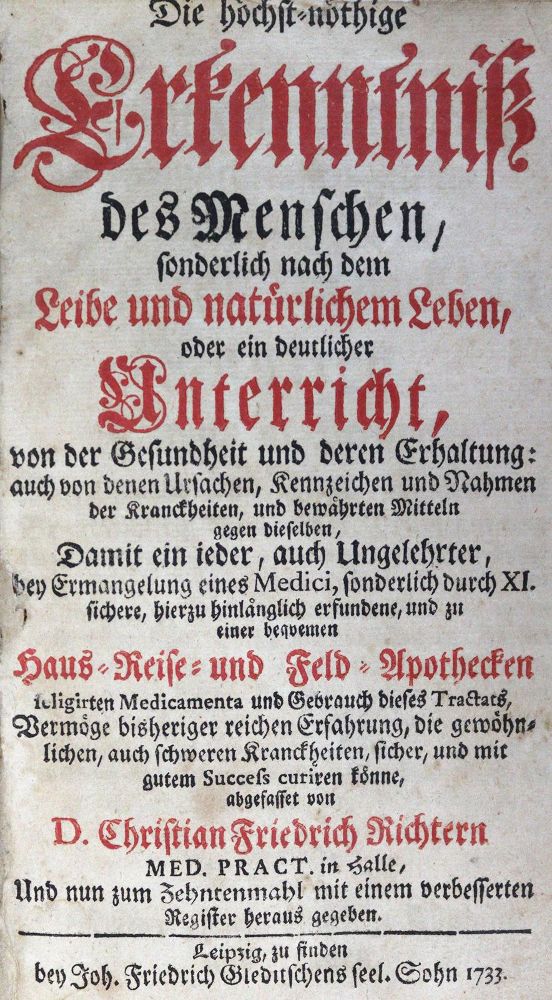 Die höchst-nöthige
Erkenntniß
des Menschen,
sonderlich nach dem
Leibe und natürlichem Leben,
oder ein deutlicher
Unterricht,
von der Gesundheit und deren Erhaltung:
auch von denen Ursachen, Kennzeichen und Nahmen
der Kranckheiten, und bewährten Mitteln
gegen dieselben,
Damit ein ieder, auch Ungelehrter,
bey Ermangelung eines Medici, sonderlich durch XI.
sichere, hierzu hinlänglich erfundene, und zu
einer beqvemen
Haus-Reise- und Feld-Apothecken
seligirten Medicamenta und Gebrauch dieses Tractats,
Vermöge bisheriger reichen Erfahrung, die gewöhn-
lichen, auch schweren Kranckheiten, sicher, und mit
gutem Success curiren könne,
abgefasset von
D. Christian Friedrich Richtern
MED. PRACT. in Halle,
Und nun zum Zehntenmahl mit einem verbesserten
Register heraus gegeben.
Leipzig, zu finden
bey Joh. Friedrich Gleditschens seel. Sohn 1733.